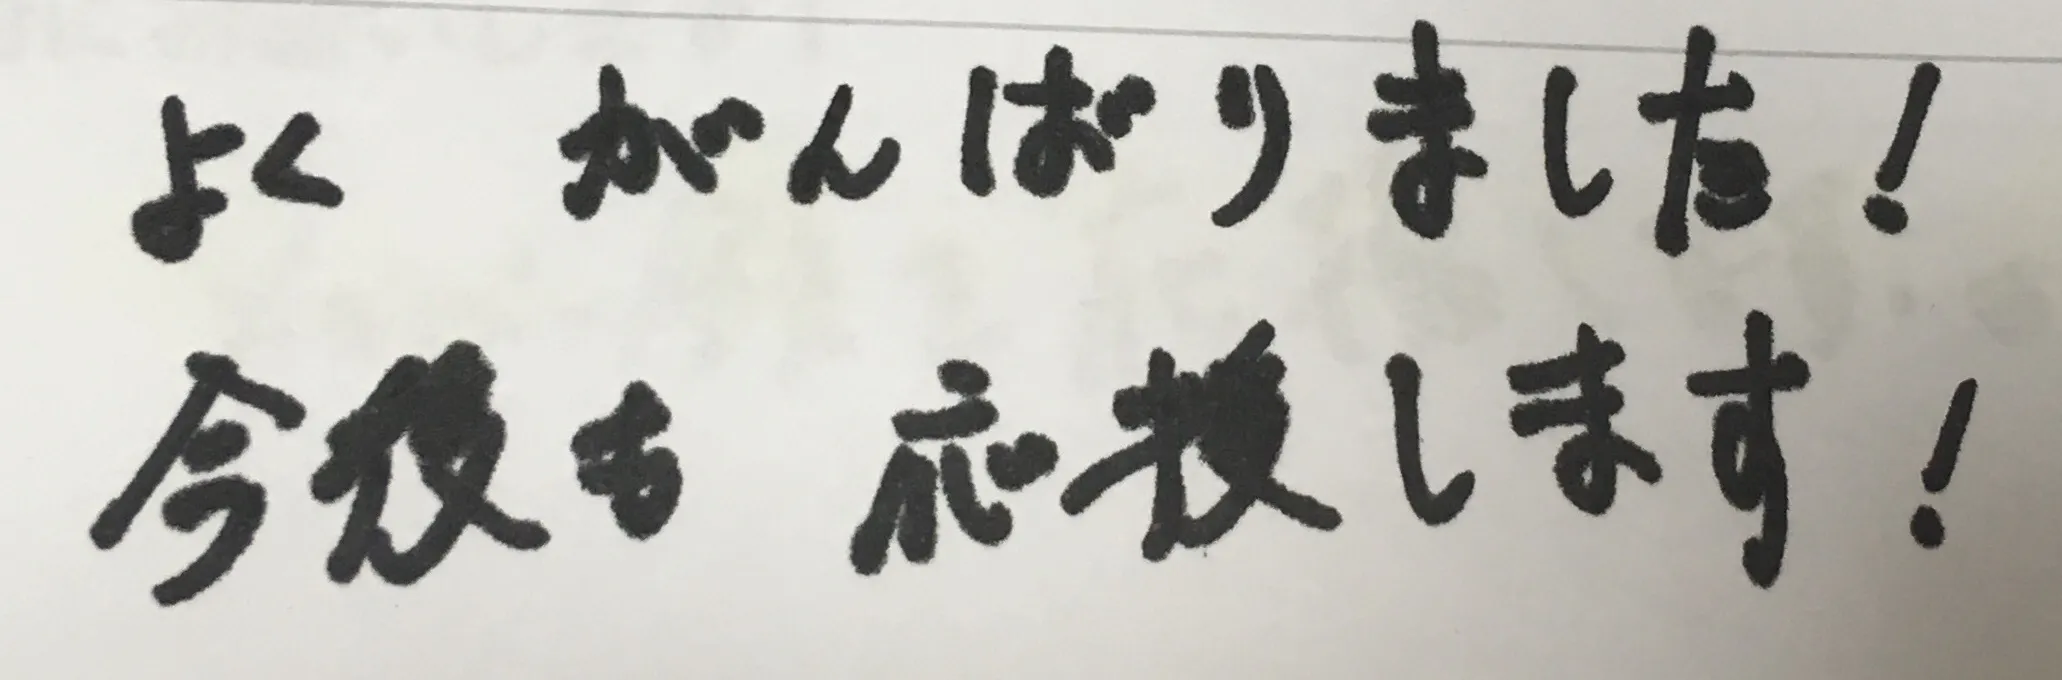 よく がんばりました!
今後も 応援します!